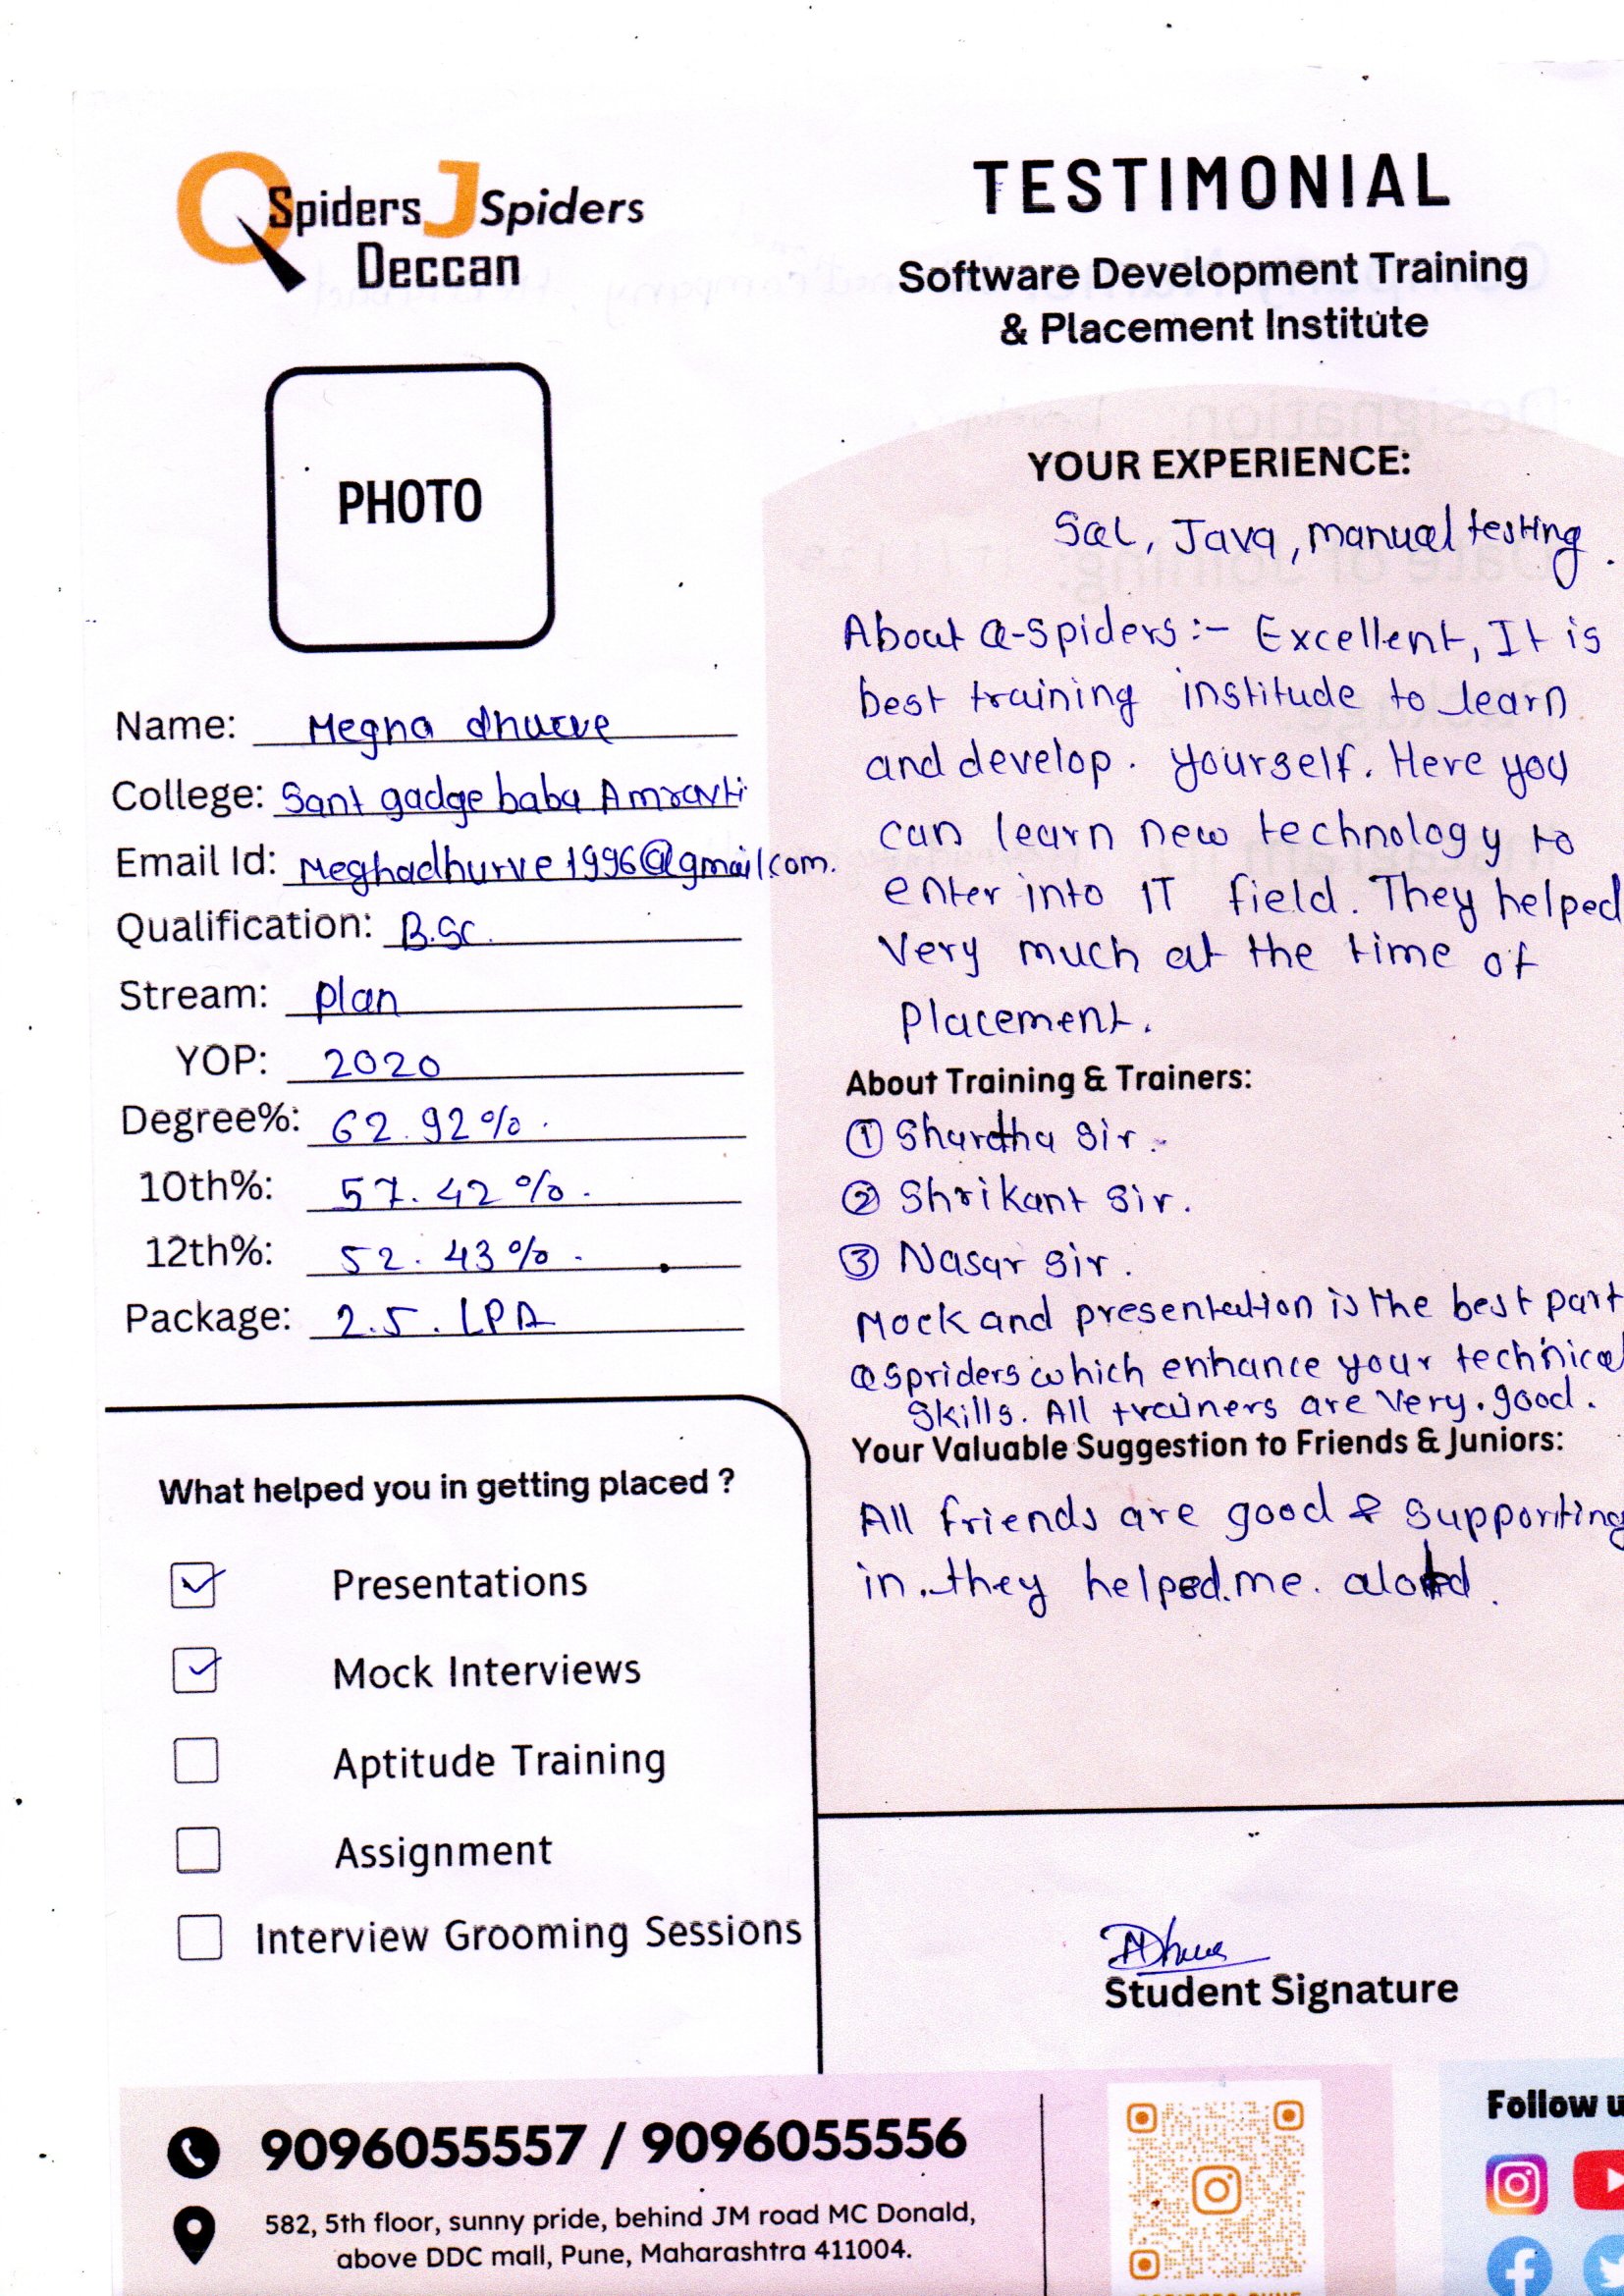 QSpiders JSpiders
Deccan
TESTIMONIAL
Software Development Training
& Placement Institute
PHOTO
Name: Megna dhurve
College: Sant gadge baba Amravti
Email Id: Meghadhurve1996@gmail.com.
Qualification: B.Sc.
Stream: plan
YOP: 2020
Degree%: 62.92%.
10th%: 57.42%.
12th%: 52.43%.
Package: 2.5. LPA
What helped you in getting placed ?
Presentations
Mock Interviews
Aptitude Training
Assignment
Interview Grooming Sessions
YOUR EXPERIENCE:
SQL, Java, manual testing.
About Q-spiders:- Excellent, It is
best training institude to learn
and develop. yourself. Here you
can learn new technology to
enter into IT field. They helped
very much at the time of
Placement.
About Training & Trainers:
① Sir.
② Shrikant Sir.
③ Nasar Sir.
Mock and presentation is the best part
Qspriders which enhance your technical
Skills. All trainers are very. good.
Your Valuable Suggestion to Friends & Juniors:
All friends are good & Supporting
in. they helped. me.
Student Signature
9096055557 / 9096055556
582, 5th floor, sunny pride, behind JM road MC Donald,
above DDC mall, Pune, Maharashtra 411004.
Follow u